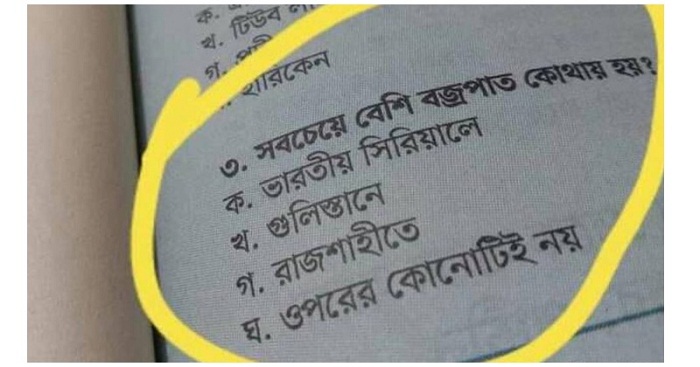 ক.
খ. টিউব
গ.
হারিকেন
৩. সবচেয়ে বেশি বজ্রপাত কোথায় হয়?
ক. ভারতীয় সিরিয়ালে
খ. গুলিস্তানে
গ. রাজশাহীতে
ঘ. ওপরের কোনোটিই নয়